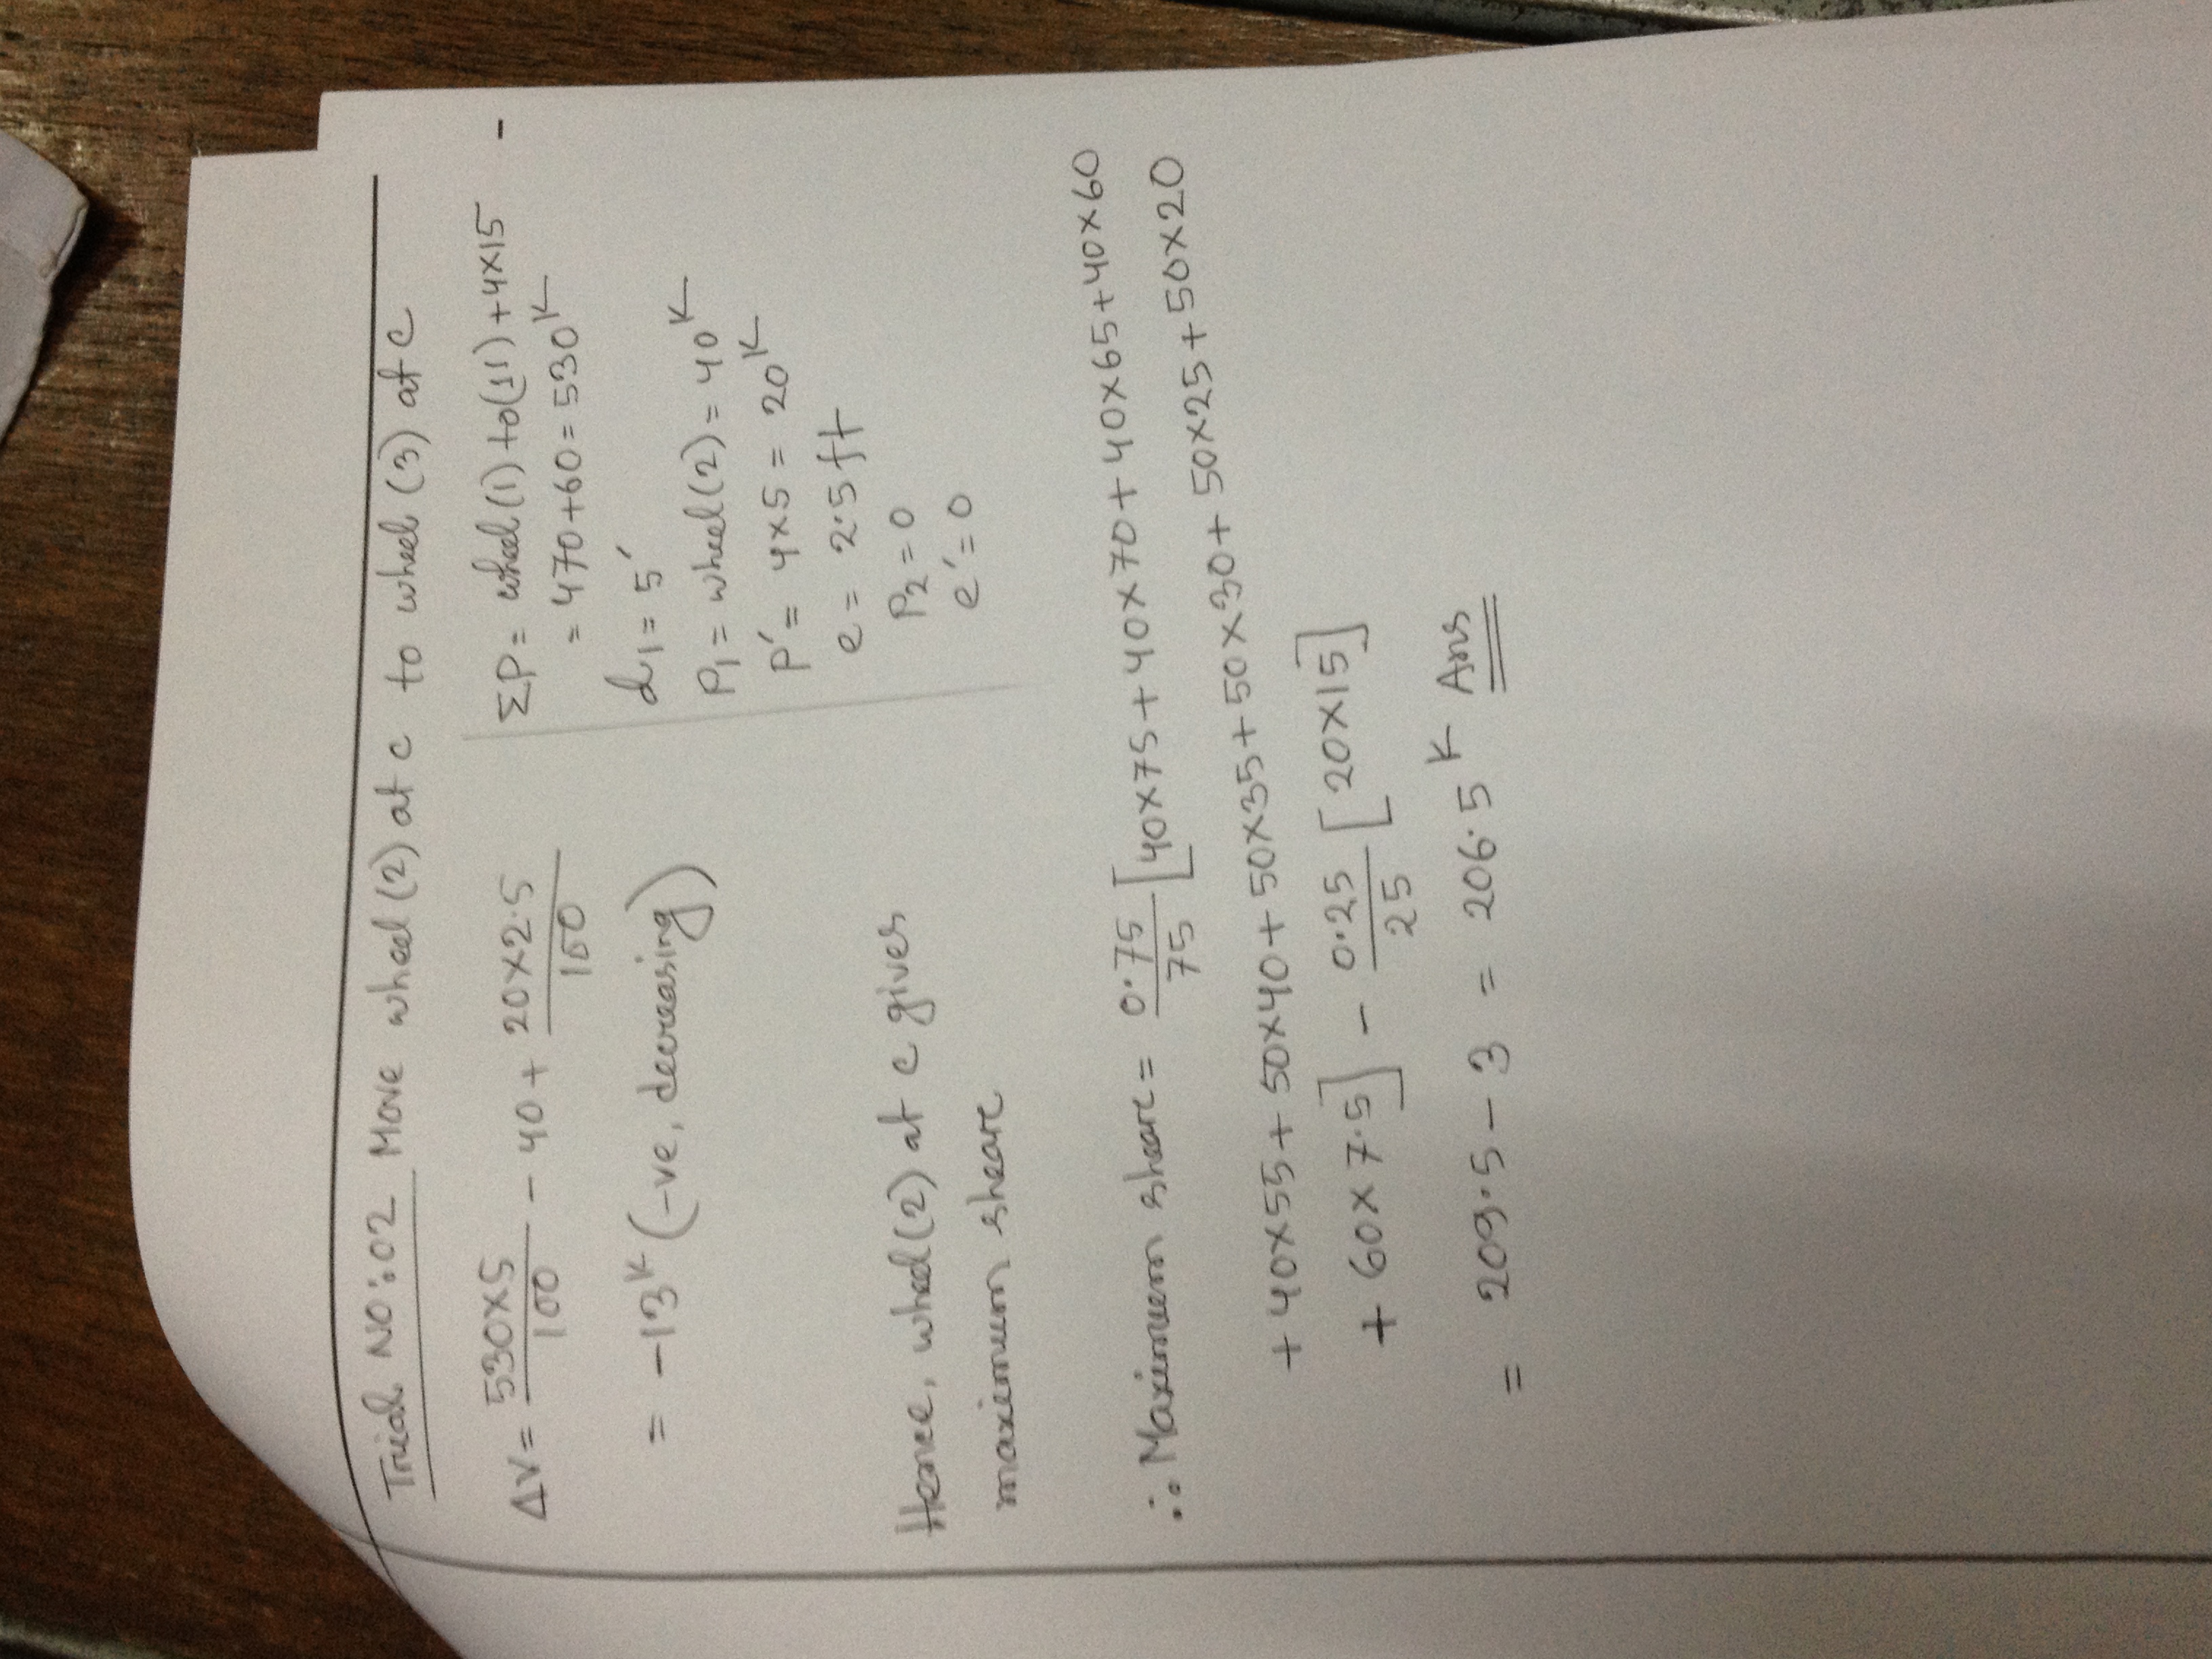 Trial NO:02 Move wheel (2) at c to wheel (3) at c
ΔV = 530×5/100 - 40 + 20×2.5/100
= -13ᴷ (-ve, decreasing)
ΣP = wheel (1) to (11) + 4×15 -
= 470+60 = 530ᴷ
d1 = 5'
P1 = wheel (2) = 40ᴷ
P' = 4×5 = 20ᴷ
e = 2.5 ft
P2 = 0
e' = 0
Hence, wheel (2) at c gives
maximum sheare
∴ Maximum sheare = 0.75/75 [40×75+40×70+40×65+40×60
+40×55+50×40+50×35+50×30+50×25+50×20
+60×7.5] - 0.25/25 [20×15]
= 209.5 - 3 = 206.5ᴷ Ans